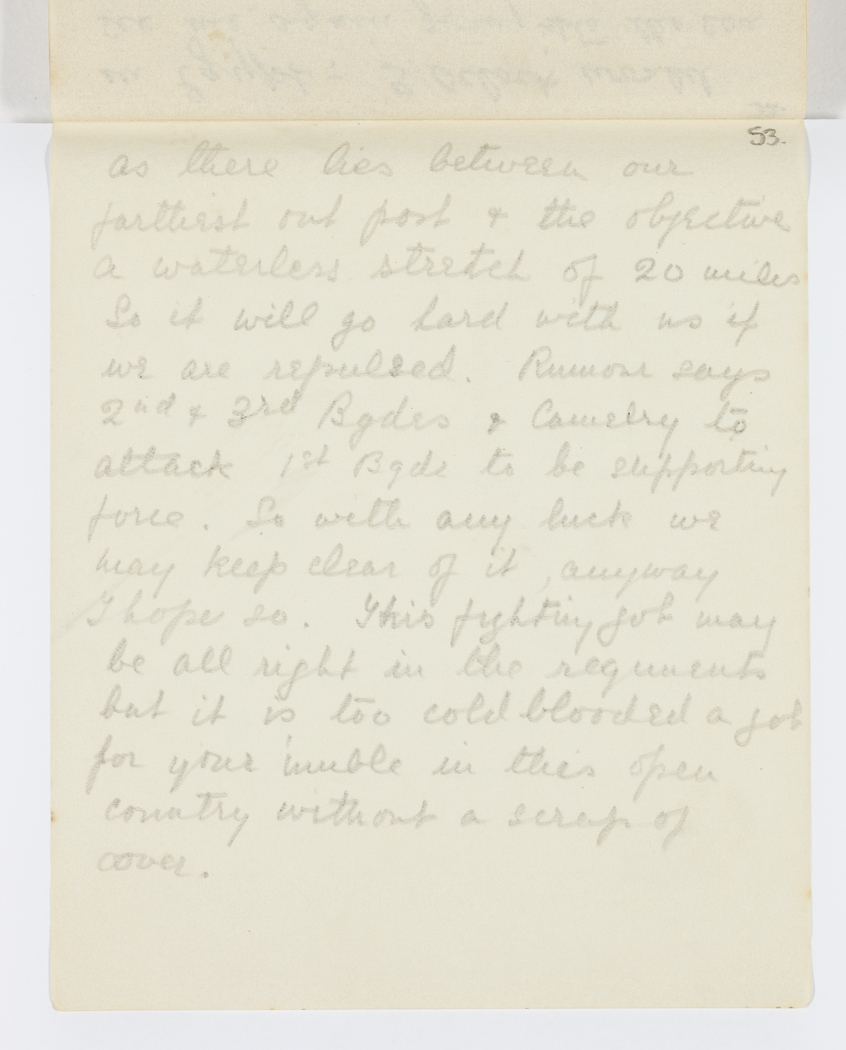 53.
as there lies between our
farthest out post & the objective
a waterless stretch of 20 miles
So it will go hard with us if
we are repulsed. Rumour says
2nd & 3rd Bgdes & Camelry to
attack 1st Bgde to be supporting
force. So with any luck we
may keep clear of it, anyway
I hope so. This fighting job may
be all right in the regiments
but it is too coldblooded a job
for your 'umble in this open
country without a scrap of
cover.